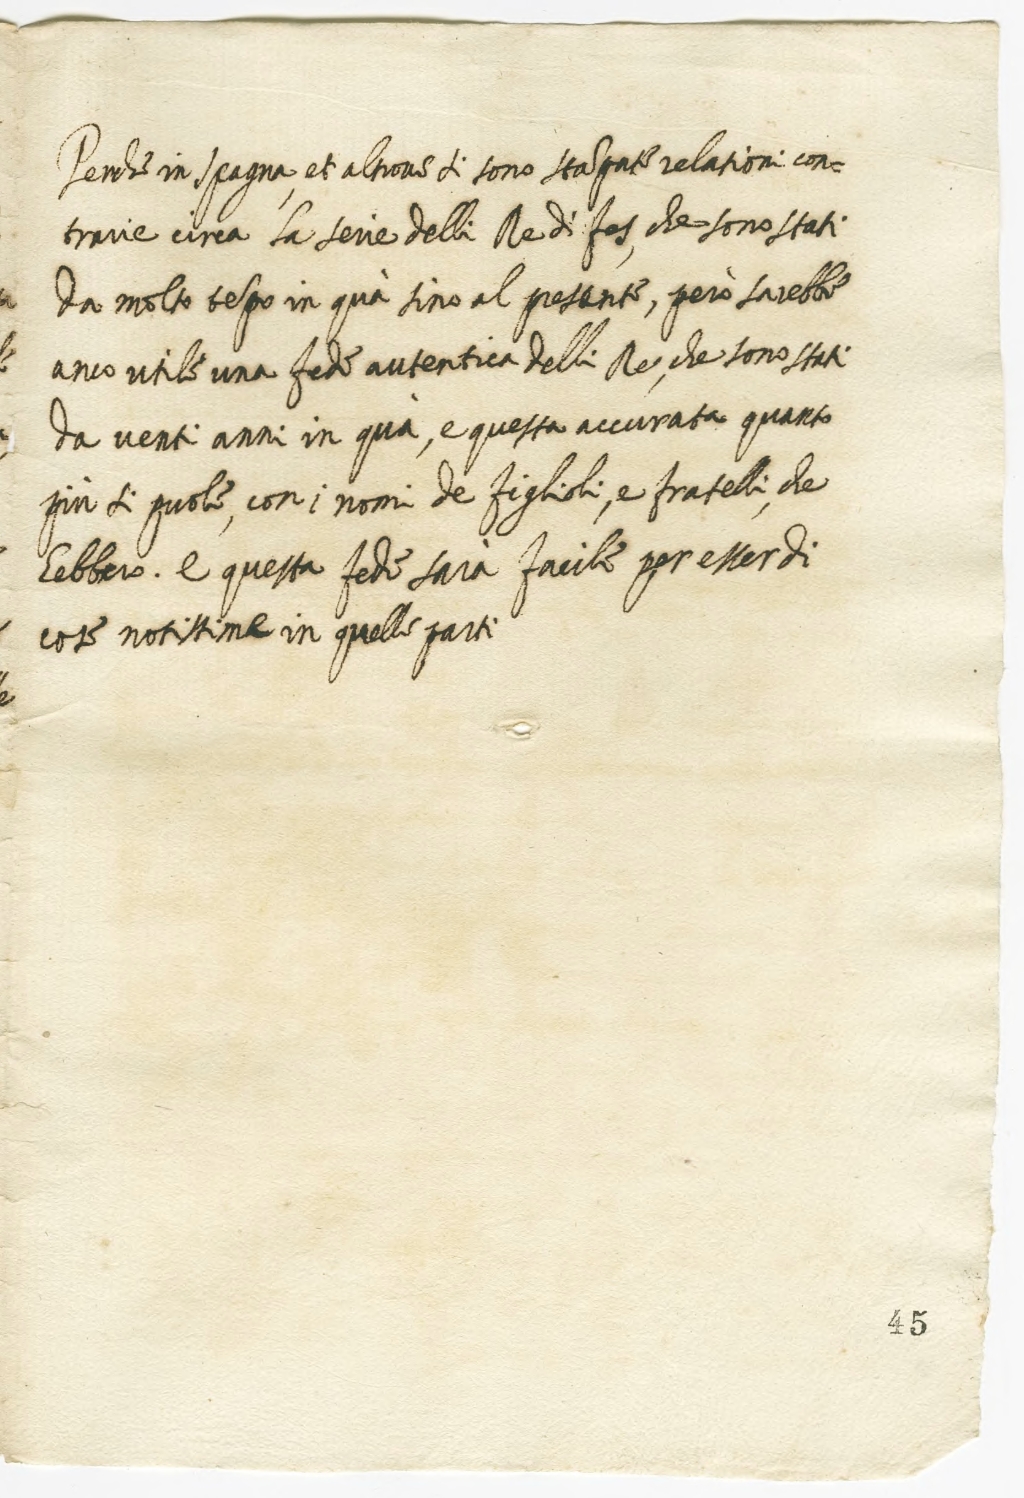 Perche in Spagna, et altroue si sono stapate relationi con=
trarie circa la serie delli Re di fes, che sono stati
da molto tepo in quà sino al presente, però sarebbe
anco utile una fede autentica delli Re, che sono stati
da uenti anni in quà, e questa accurata quanto
più si puole, con i nomi de figlioli, e fratelli, che
hebbero. e questa fede sarà facile per esser di
cose notissime in quelle parti
45